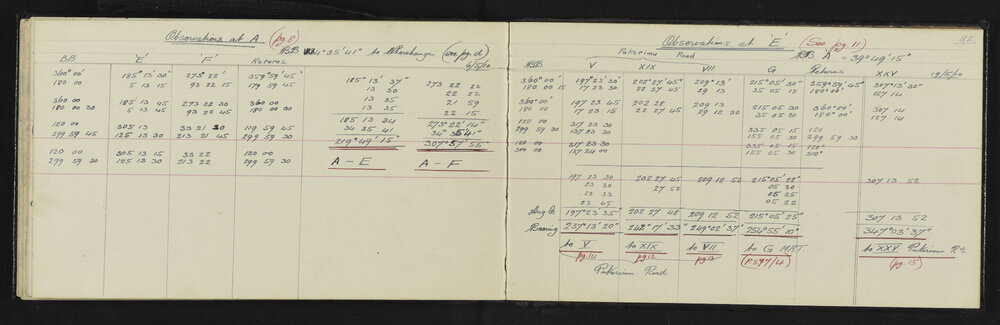 Observations at A (pg. 8)
BB 34°35'41" to Wharehanga (see pg. d)
BB 'E' 'F' Returns 4/5/10
360°00' 185°13'30" 273°22' 359°59'45"
180 00 5 13 15 93 22 15 179 59 45
360 00 185 13 45 273 22 30 360 00
180 00 30 5 13 45 93 22 45 180 00 30
120 00 305 13 33 21 30 119 59 45
299 59 45 125 13 30 213 21 45 299 59 30
120 00 305 13 15 33 22 120 00
299 59 30 125 13 30 213 22 299 59 30
185° 13' 37" 273 22 22
13 30 22 22
13 35 21 59
13 35 22 15
185 13 34 273°22'14"
34 35 41 34° 35 41"
219° 49' 15 307° 57' 55"
A – E A – F
82
Observations at 'E' (See pg. 11)
Pukerimu Road BB 'A' = 39°49'15"
BB V XIX VII G Returns XXV 19/5/10
360°00' 197°23'30" 202°27'45" 209°13' 215°05'30" 359°59'45" 307°13'30"
180 00 15 17 23 30 22 27 45 29 13 35 05 15 180 00 127 14
360°00' 197 23 45 202 28 209 13 215 05 30 360°00' 307 14
180 00 30 17 23 15 22 27 45 29 12 30 35 05 30 180°00' 127 14
120 00 317 23 30 335 05 15 120
299 59 30 137 23 30 155 05 30 299 59 30
120 00 317 23 30 335 05 15 120°
300 00 137 24 00 155 05 30 300°
197 23 30 202 27 45 209 12 52 215°05'22" 307 13 52
23 30 27 52 05 30
23 33 05 25
23 45 05 22
Angle 197°23'35" 202 27 48 209 12 52 215°05'25" 307 13 52
Bearing 237°13'20" 242°17'33" 249°02'37" 254°55'10" 347°03'37"
to V to XIX to VII to G MRT to XXV Pukerimu Rd
pg. 11 pg. 12 pg. 12 (PS97/4) (pg. 15)
Pukerimu Road